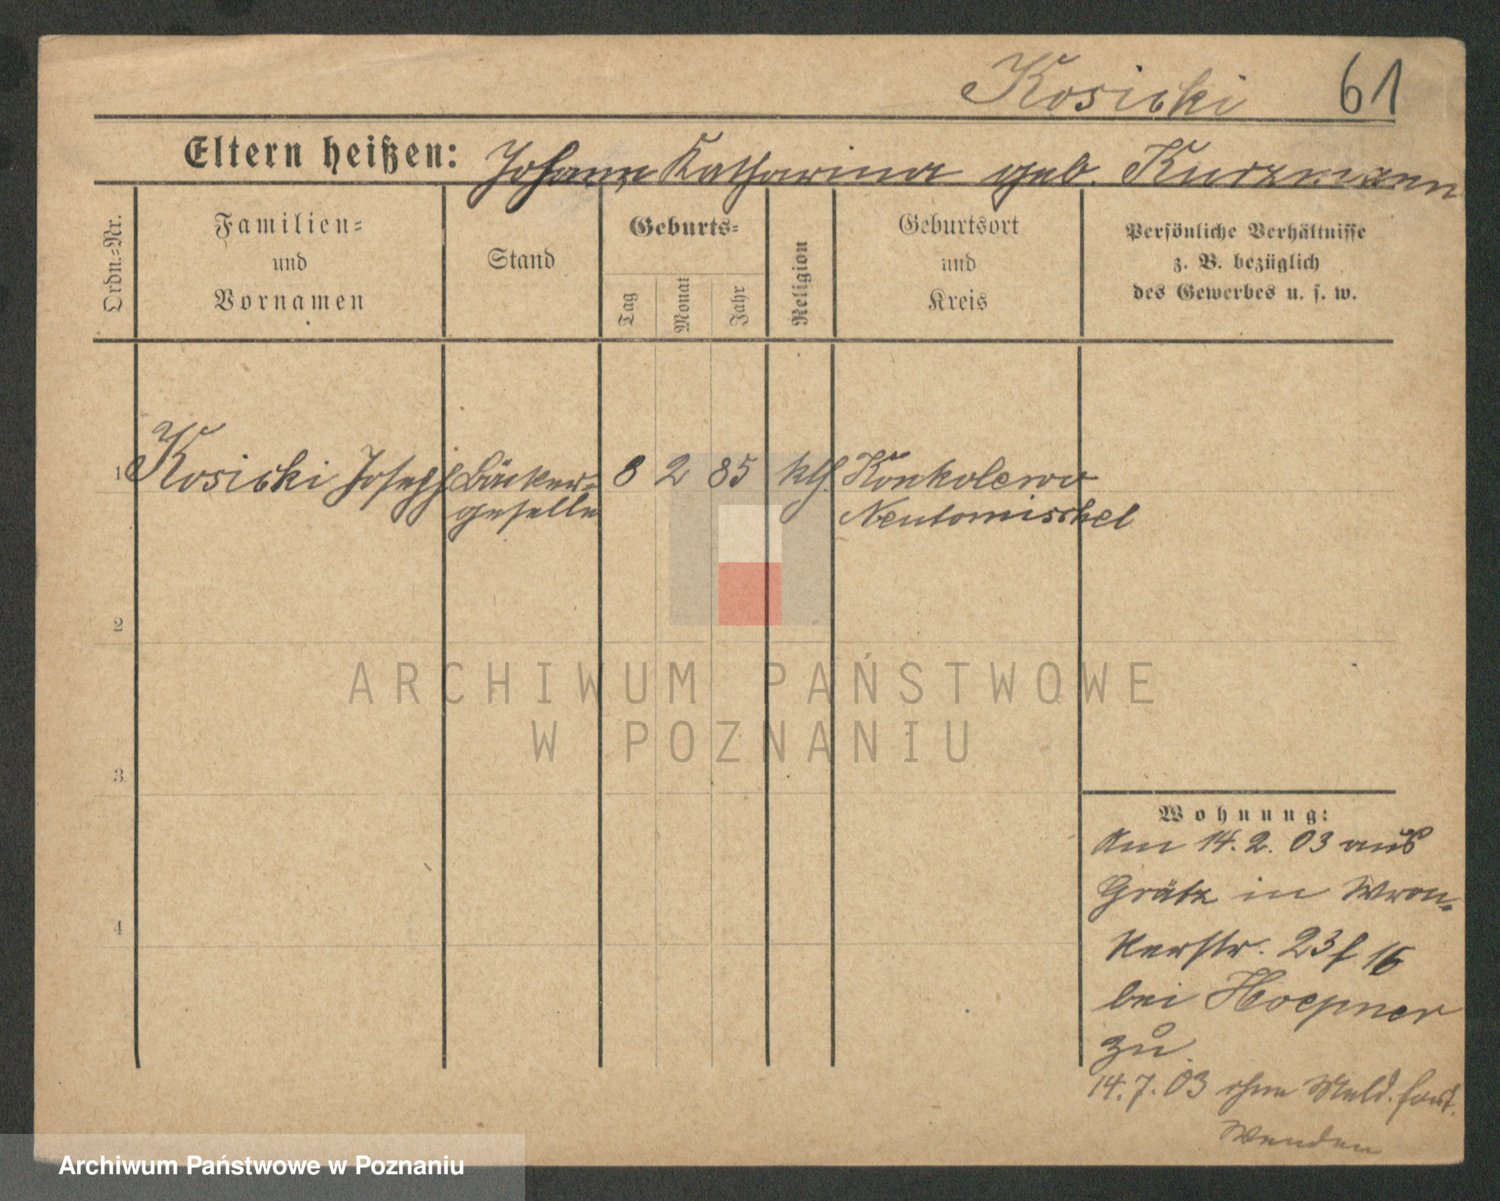 Kosicki 61
Eltern heißen: Johann Katharina geb. Kurzmann
Ordn.=Nr.
Familien=
und
Vornamen
Stand
Geburts=
Tag
Monat
Jahr
Religion
Geburtsort
und
Kreis
Persönliche Verhältnisse
z. B. bezüglich
des Gewerbes u. s. w.
1 Kosicki Joseph Bäcker= 8 2 85 kth. Konkolewo
geselle Neutomischel
2
3
4
ARCHIWUM PAŃSTWOWE
W POZNANIU
Wohnung:
Am 14.2.03 aus
Grätz in Wron=
kerstr. 23 f 16
bei Hoepner
zu.
14.7.03 ohne Meld. fort.
Wenden
Archiwum Państwowe w Poznaniu